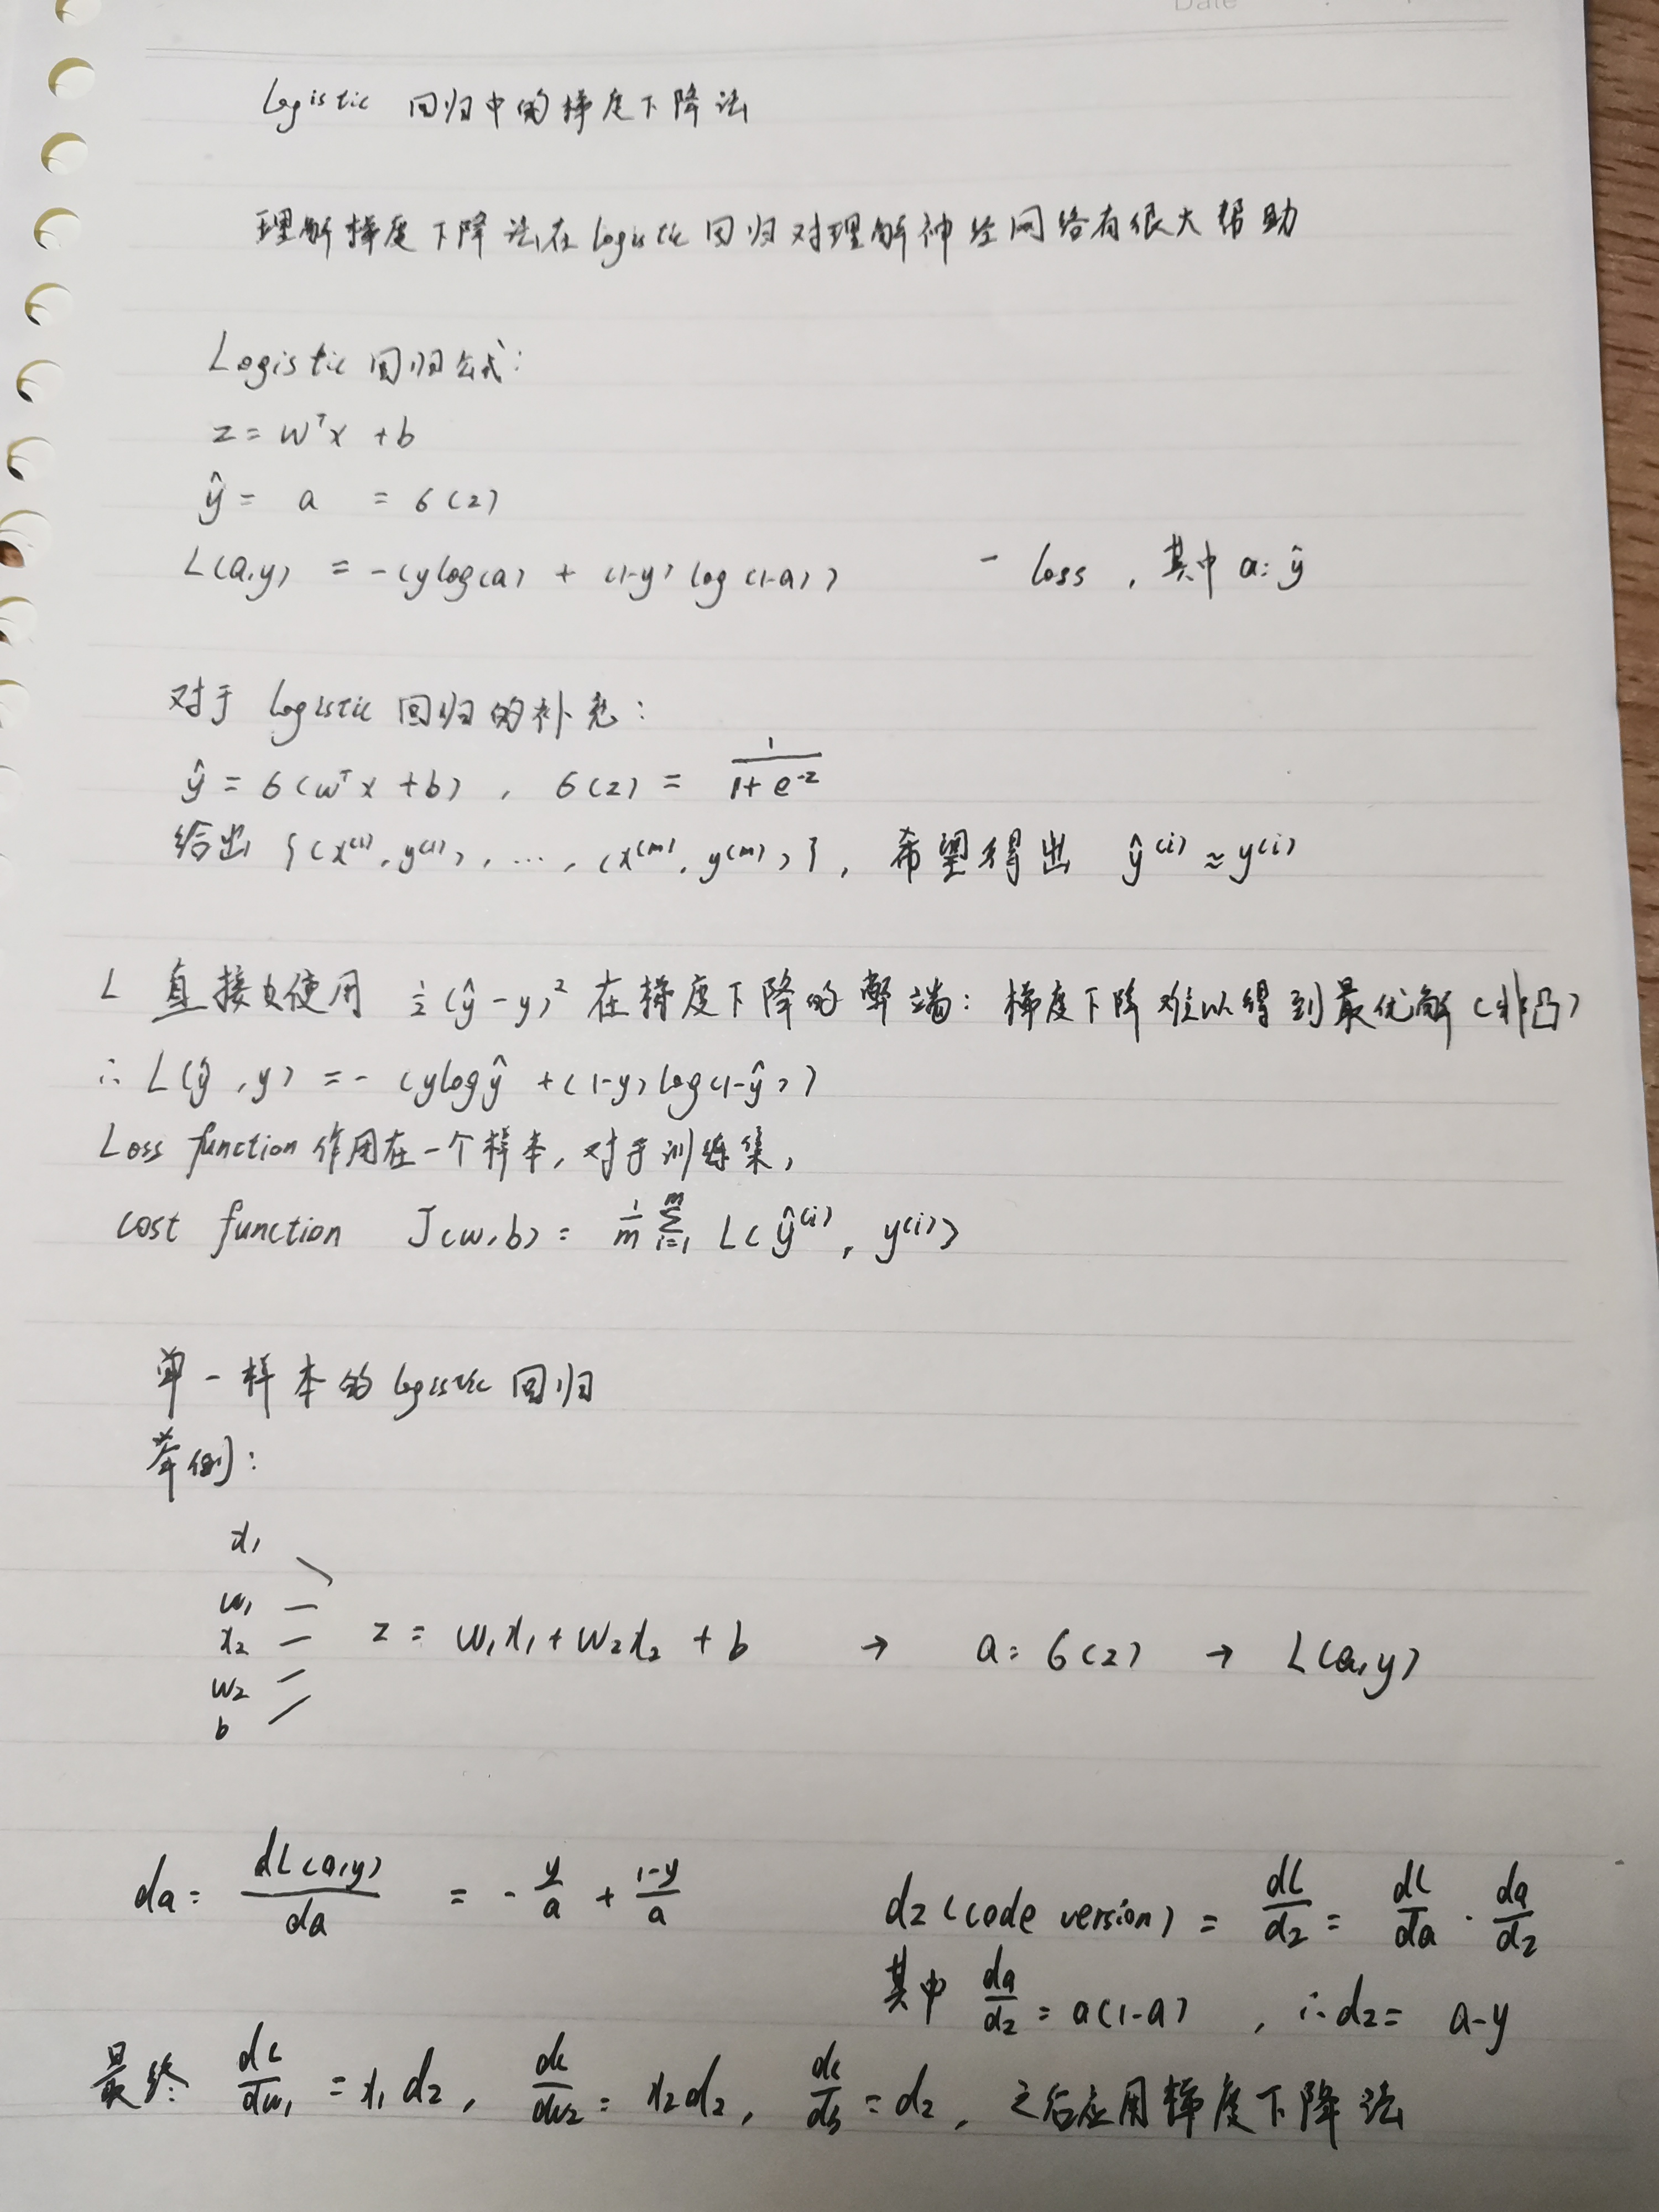 Date
Logistic 回归中的梯度下降法
理解梯度下降法在logistic回归对理解神经网络有很大帮助
Logistic 回归公式:
z = wᵀx + b
ŷ = a = σ(z)
L(a,y) = -(ylog(a) + (1-y) log(1-a)) - loss , 其中 a: ŷ
对于 logistic 回归的补充:
ŷ = σ(wᵀx + b) , σ(z) = 1/(1+e^-z)
给出 {(x⁽¹⁾, y⁽¹⁾), ..., (x⁽ᵐ⁾, y⁽ᵐ⁾)}, 希望得出 ŷ⁽ⁱ⁾ ≈ y⁽ⁱ⁾
L 直接使用 ½(ŷ-y)² 在梯度下降的弊端: 梯度下降难以得到最优解(非凸)
∴ L(ŷ, y) = - (ylogŷ + (1-y)log(1-ŷ))
Loss function 作用在一个样本, 对于训练集,
cost function J(w,b) = 1/m Σᵢ₌₁ᵐ L(ŷ⁽ⁱ⁾, y⁽ⁱ⁾)
单一样本的 logistic 回归
举例:
x₁
w₁
x₂ z = w₁x₁ + w₂x₂ + b → a = σ(z) → L(a,y)
w₂
b
da = dL(a,y)/da = - y/a + (1-y)/a dz (code version) = dL/dz = dL/da · da/dz
其中 da/dz = a(1-a) , ∴ dz = a-y
最终 dL/dw₁ = x₁ dz, dL/dw₂ = x₂dz, dL/db = dz, 之后应用梯度下降法